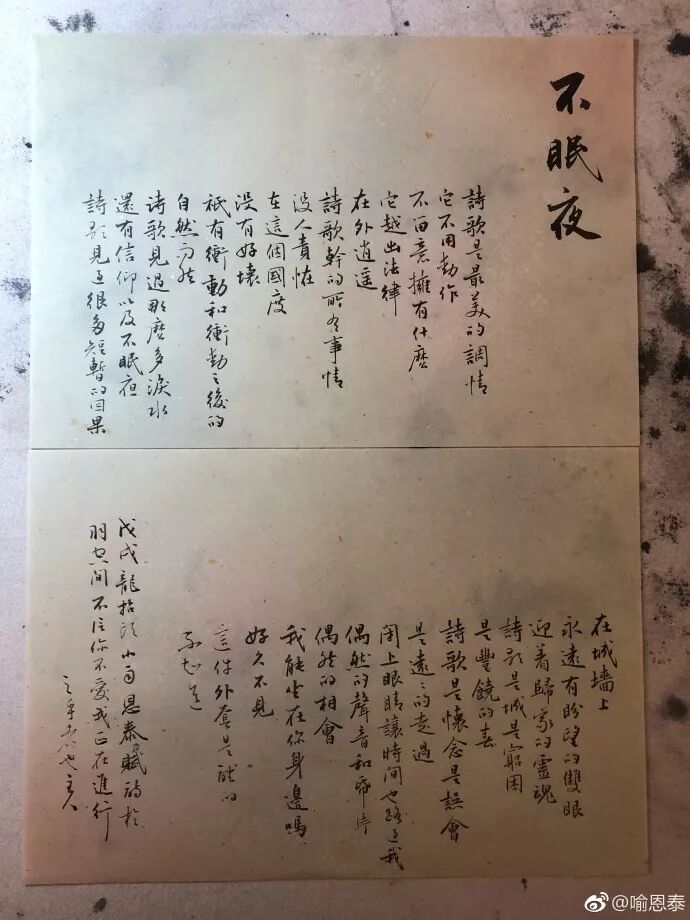 不眠夜
詩歌是最美的調情
它不用動作
不百意擁有什麽
它越出法律
在外逍遥
詩歌幹的所有事情
没人責怪
在這個國度
没有好壞
祇有衝動和衝動之後的
自然而然
诗歌見過那麽多淚水
還有信仰以及不眠夜
詩歌見過很多短暫的因果
在城墙上
永遠有盼望的雙眼
迎着歸家的靈魂
詩歌是城是窮困
是豐饒的春
詩歌是懷念是誤會
是遠遠的走過
閉上眼睛讓時間也路過我
偶然的聲音和
偶然的相會
我能坐在你身邊嗎
好久不見
這件外套是的
不知道
戊戌龍抬頭小雨恩泰賦詩於
羽間不信你不愛我正在進行
之主人
@喻恩泰